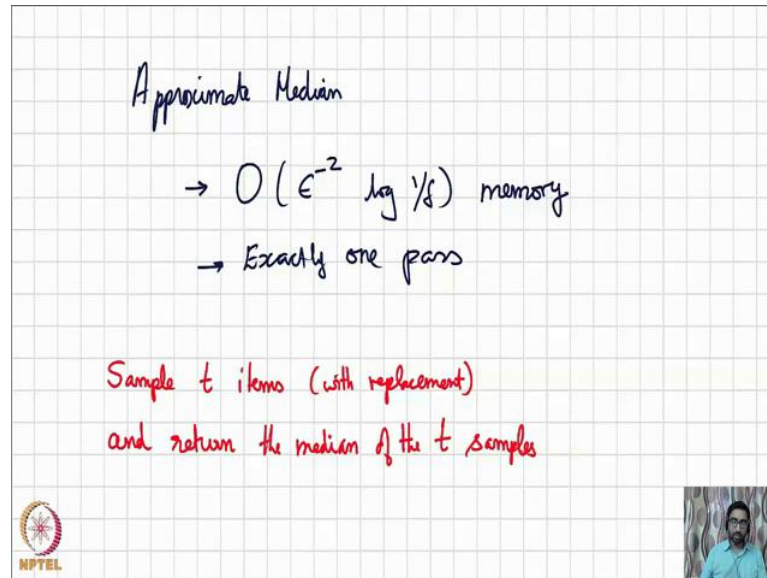 Approximate Median
→ O(ϵ⁻² log 1/δ) memory
→ Exactly one pass
Sample t items (with replacement)
and return the median of the t samples
NPTEL